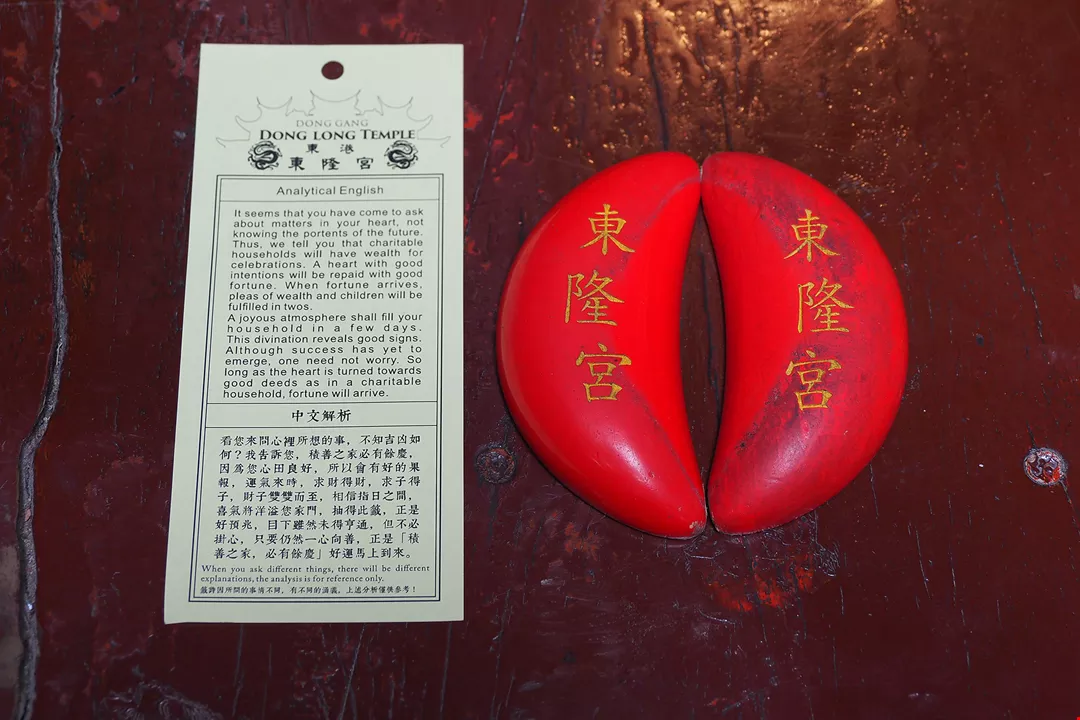 DONG GANG
DONG LONG TEMPLE
東港
東隆宮
Analytical English
It seems that you have come to ask
about matters in your heart, not
knowing the portents of the future.
Thus, we tell you that charitable
households will have wealth for
celebrations. A heart with good
intentions will be repaid with good
fortune. When fortune arrives,
pleas of wealth and children will be
fulfilled in twos.
A joyous atmosphere shall fill your
household in a few days.
This divination reveals good signs.
Although success has yet to
emerge, one need not worry. So
long as the heart is turned towards
good deeds as in a charitable
household, fortune will arrive.
中文解析
看您來問心裡所想的事，不知吉凶如
何？我告訴您，積善之家必有餘慶，
因為您心田良好，所以會有好的果
報，運氣來時，求財得財，求子得
子，財子雙雙而至，相信指日之間，
喜氣將洋溢您家門，抽得此籤，正是
好預兆，目下雖然未得亨通，但不必
掛心，只要仍然一心向善，正是「積
善之家，必有餘慶」好運馬上到來。
When you ask different things, there will be different
explanations, the analysis is for reference only.
籤詩因所問的事情不同，有不同的涵義，上述分析僅供參考！
東隆宮
東隆宮